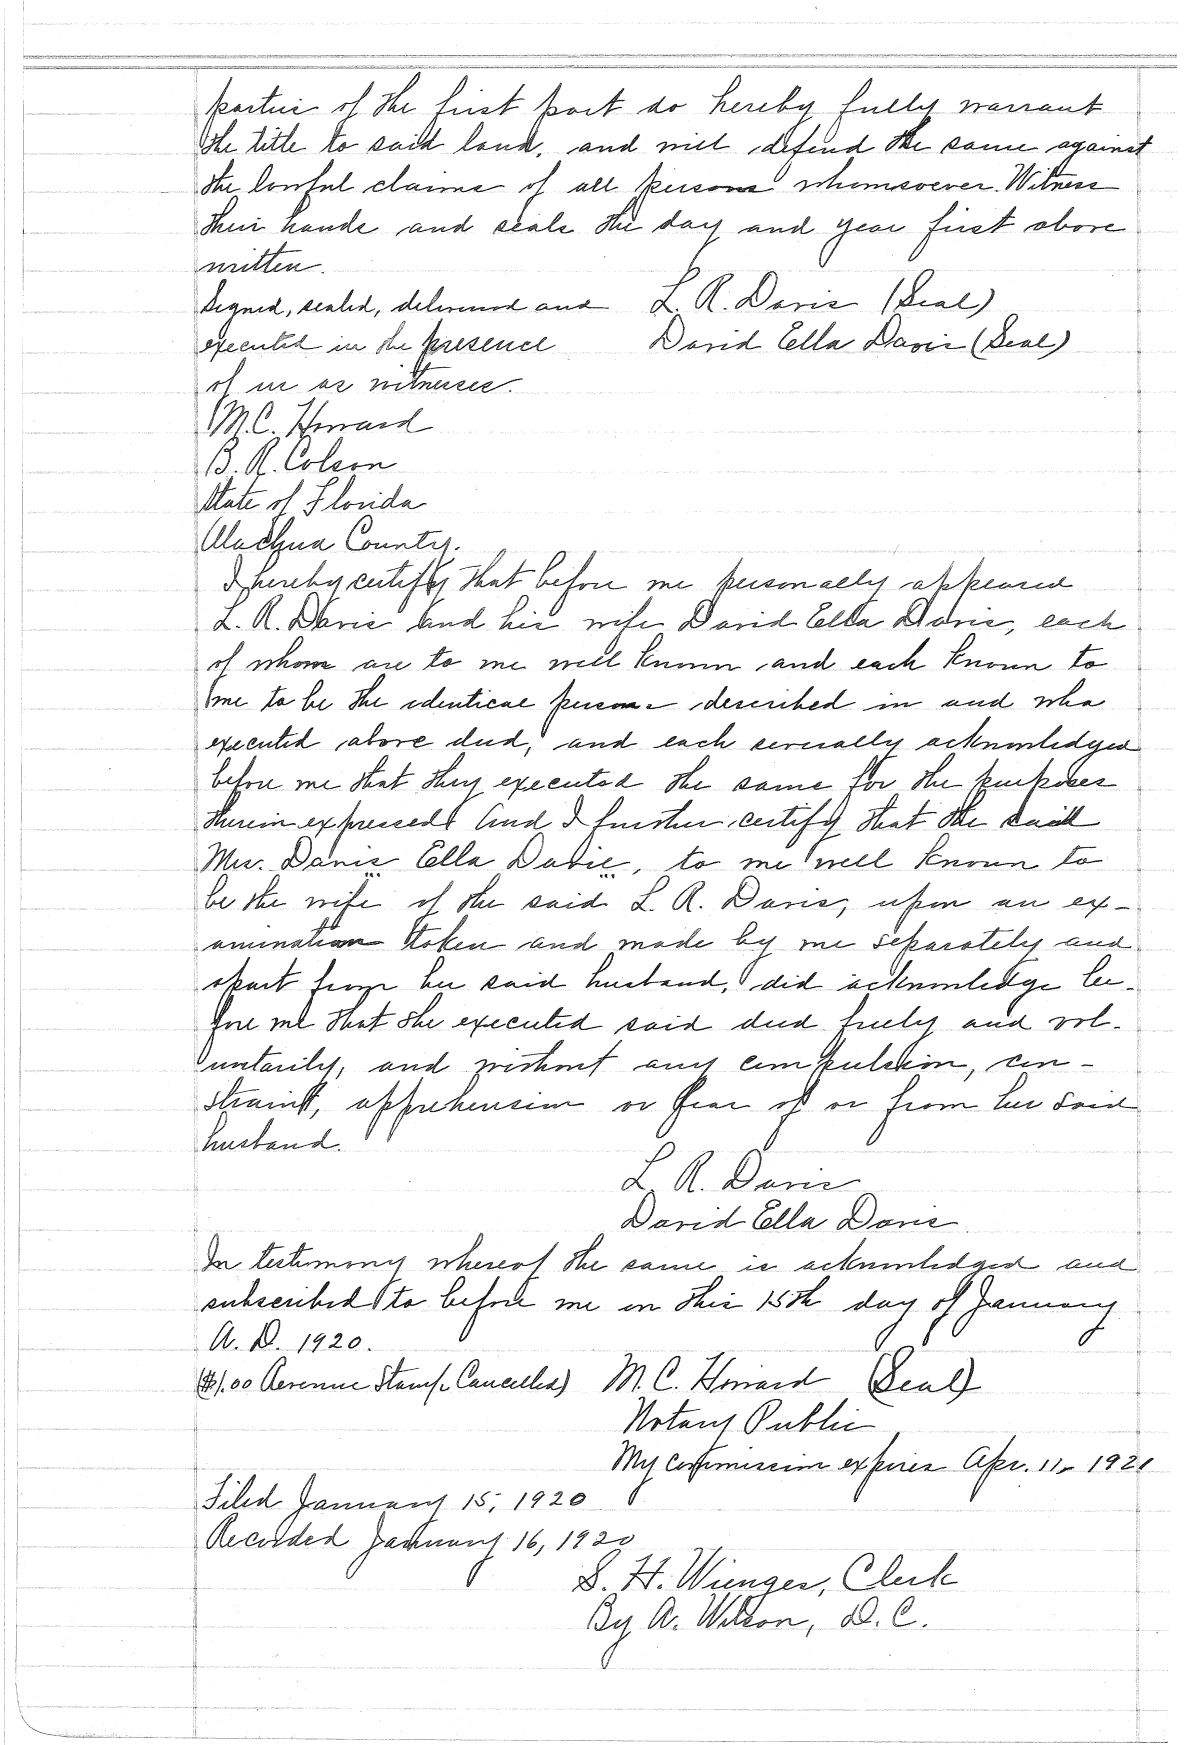 parties of the first part do hereby fully warrant
the title to said land, and will defend the same against
the lawful claims of all persons whomsoever. Witness
their hands and seals the day and year first above
written.
Signed, sealed, delivered and L. R. Davis (Seal)
executed in the presence David Ella Davis (Seal)
of us as witnesses.
M. C. Howard
B. R. Colson
State of Florida
Alachua County.
I hereby certify that before me personally appeared
L. R. Davis and his wife David Ella Davis, each
of whom are to me well known and each known to
me to be the identical persons described in and who
executed above deed, and each severally acknowledged
before me that they executed the same for the purposes
therein expressed And I further certify that the said
Mrs. Davis Ella Davie, to me well known to
be the wife of the said L. R. Davis, upon an ex-
amination taken and made by me separately and
apart from her said husband, did acknowledge be-
fore me that she executed said deed freely and vol-
untarily, and without any compulsion, con-
straint, apprehension or fear of or from her said
husband.
L. R. Davis
David Ella Davis
In testimony whereof the same is acknowledged and
subscribed to before me on this 15th day of January
A. D. 1920.
($1.00 Revenue Stamp Cancelled) M. C. Howard (Seal)
Notary Public
My commission expires Apr. 11, 1921
Filed January 15, 1920
Recorded January 16, 1920
S. H. Wienges, Clerk
By A. Wilson, D. C.